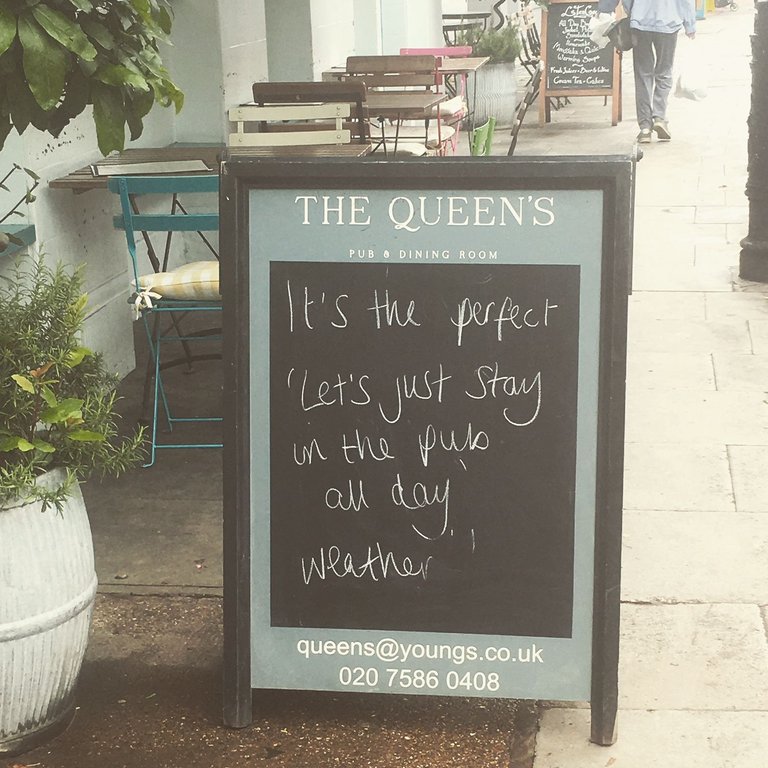 THE QUEEN'S
PUB & DINING ROOM
It's the perfect
'Let's just stay
in the pub
all day'
weather''
queens@youngs.co.uk
020 7586 0408
All Day
Homemade
Cream Tea - Cakes